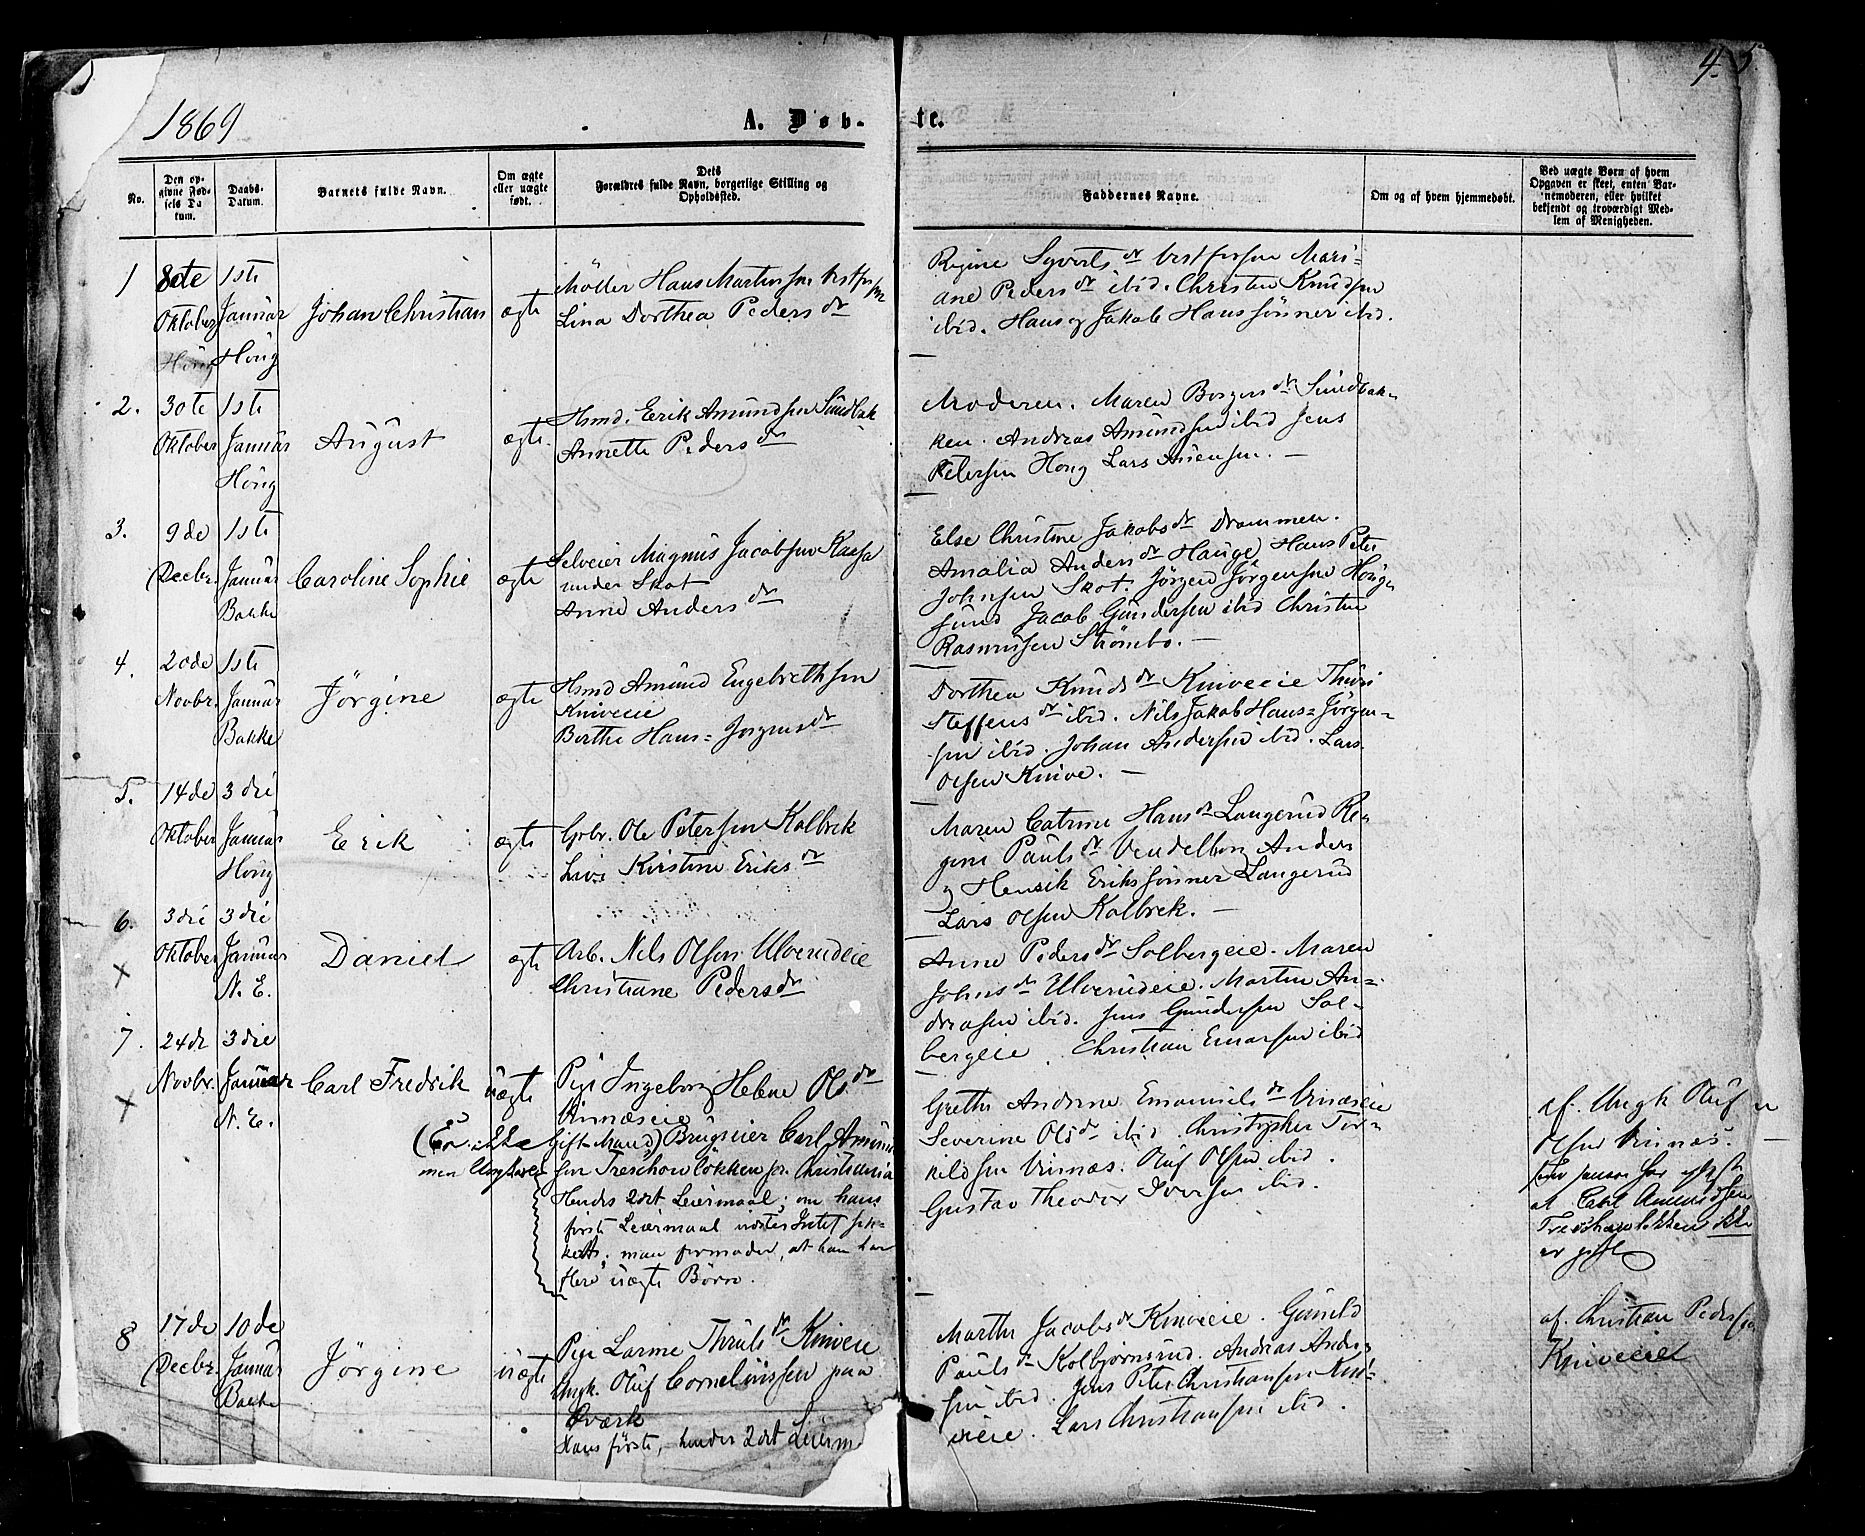 1869
A. Døb-
te.
4. 5
No.
Den op-
givne Fød-
sels Da
tum.
Daabs-
Datum.
Barnets fulde Navn.
Om ægte
eller uægte
født.
Dets
Forældres fulde Navn, borgerlige Stilling og
Opholdssted.
Faddernes Navne.
Om og af hvem hjemmedøbt.
Ved uægte Børn af hvem
Opgaven er skeet, enten Bar-
nemoderen, eller hvilket
bekjendt og troværdigt Med-
lem af Menigheden.
1
8de
Oktober
Houg
1ste
Januar
Houg
Johan Christian
ægte
Møller Hans Martinsen Vestfossen
Lina Dorthea Pedersdr
Regine Syvertsdr Vestfossen Mari-
ane Pedersdr ibid. Christen Knudsen
ibid. Hans og Jakob Hanssønner ibid.
2.
30te
Oktober
1ste
Januar
Houg
August
ægte.
Hsmd. Erik Amundsen Sundbak
Annette Pedersdr
Moderen. Maren Borgersdr Sundbak-
ken. Andreas Amundsen ibid Jens
Petersen Houg Lars
3.
9de
Decbr.
1ste
Januar
Bakke
Caroline Sophie
ægte
Selveier Magnus Jacobsen Kaasa
under Skot
Anne Andersdr
Else Christine Jakobsdr Drammen.
Amalia Andersdr Hauge) Hans Peter
Johnsen Skot. Jørgen Jørgensen Houg-
sund Jacob Gundersen ibid Christen
Rasmussen Strømbo. —
4.
20de
Novbr.
1ste
Januar
Bakke
Jørgine
ægte
Hsmd Amund Engebrethsen
Kniveeie
Berthe Hans= Jorgensdr
Dorthea Knudsdr Kniveeie Thuri
Steffensdr ibid. Nils Jakob Hans= Jørgen-
sen ibid. Johan Andersen ibid. Lars
Olsen Knive. —
5.
14de
Oktober
3die
Januar
Houg
Erik
ægte
Gbr. Ole Petersen Kolbrek
Live Kirstine Eriksdr
Maren Catrine Hansdr Langerud Re-
gine Paulsdr Vendelborg Anders
og Henrik Erikssønner Langerud
Lars Olsen Kolbrek. —
6.
x
3die
Oktober
3die
Januar
N. E.
Daniel
ægte
Arb. Nils Olsen Ulverudeie
Christiane Pedersdr
Anne Pedersdr Solbergeie. Maren
Johnsdr Ulverudeie. Martin An-
dreasen ibid. Jens Gundersen Sol-
bergeie. Christian Einarsen ibid
7.
x
24de
Novbr.
3die
Januar
N. E.
Carl Fredrik
uægte
Pige Ingeborg Helene Olsdr
Vinnæseie
(Er ikke
gift Mand) Brugseier Carl Amund
men Ungkarl
sen Treschowløkken pr. Christiania
Hendes 2det Leiermaal; om hans
første Leiermaal vides Intet sik-
kert; man formoder, at han har
flere uægte Børn.
Grethe Andrine Emanuelsdr Vinæseie
Severine Olsdr ibid Christopher Tor-
kildsen Vinnæs. Oluf Olsen ibid.
Gustav Theodor Iversen ibid.
af. Ungk Oluf
Olsen Vinnæs.
at Carl Amundsen
Treschowløkken ikke
er gift
8
17de
Decbr.
10de
Januar
Bakke
Jørgine
uægte
Pige Larine Thrulsdr Kniveeie
Ungk. Oluf Corneliussen paa
Sværk
Hans første, hendes 2det Leierm
Marthe Jacobsdr Kniveeie. Gunild
Paulsdr Kolbjørnsrud. Andreas Andre-
sen ibid. Jens Peter Christiansen Kni-
veeie. Lars Christiansen ibid.
af. Christian Pedersen
Kniveeiet